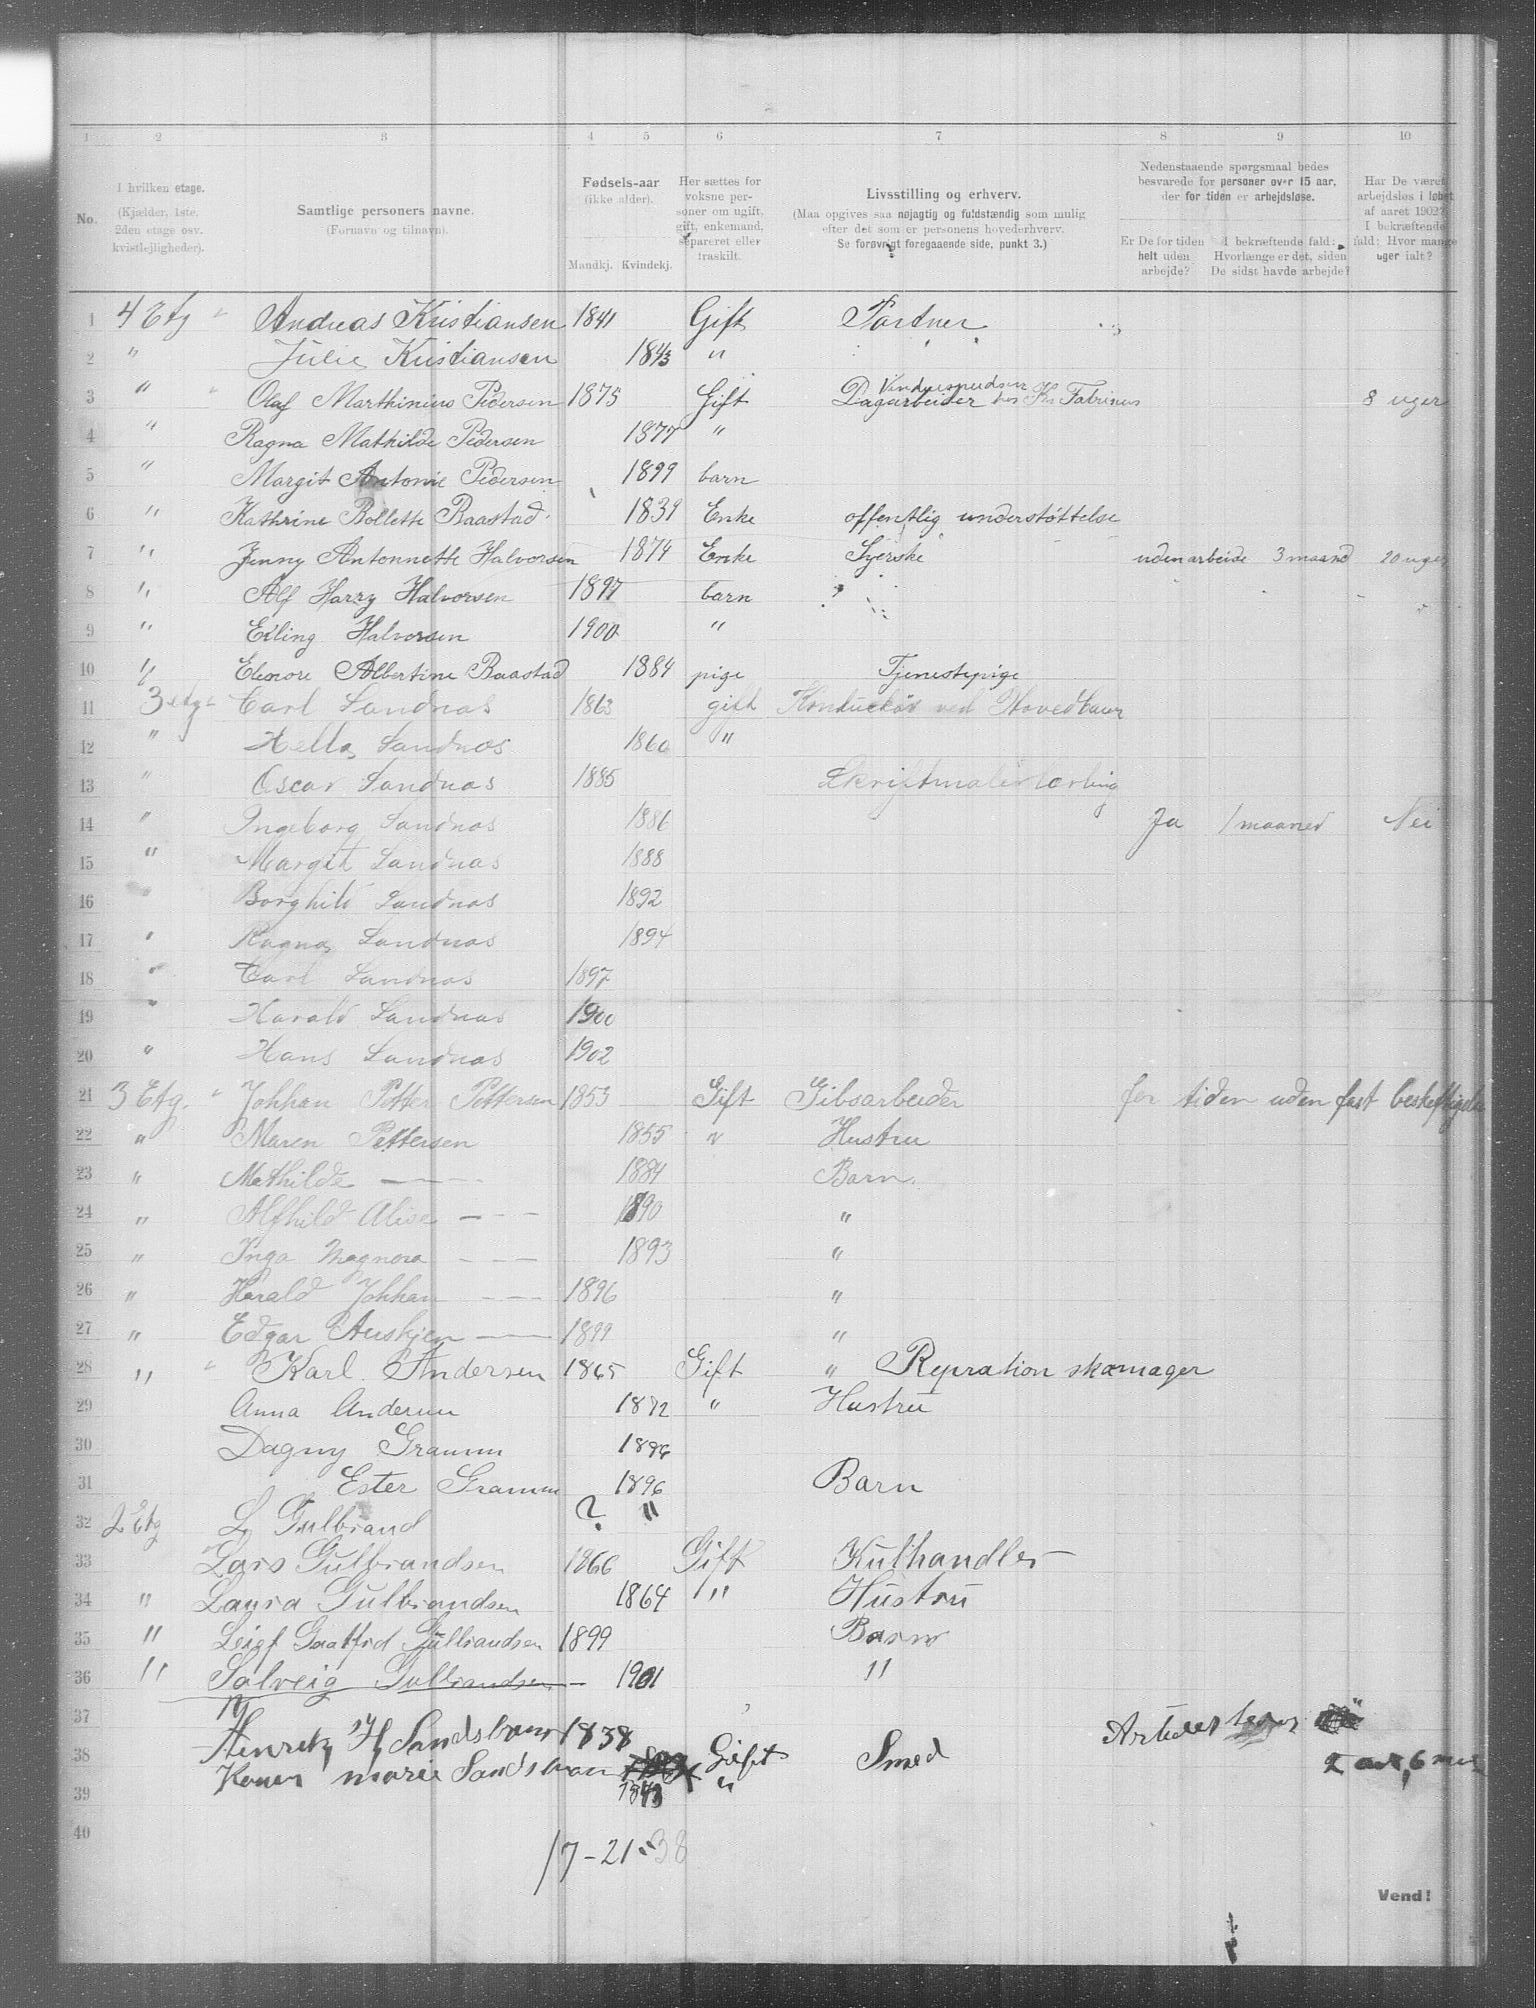 1 2 3 4 5 6 7 8 9 10
No.
I hvilken etage.
(Kjælder, 1ste, 2den etage osv. kvistlejligheder).
Samtlige personers navne.
(Fornavn og tilnavn).
Fødsels-aar
(ikke alder).
Mandkj. Kvindekj.
Her sættes for voksne personer om ugift, gift, enkemand, separeret eller fraskilt.
Livsstilling og erhverv.
(Maa opgives saa nøjagtig og fuldstændig som mulig efter det som er personens hovederhverv. Se forøvrigt foregaaende side, punkt 3.)
Nedenstaaende spørgsmaal bedes besvarede for personer over 15 aar, der for tiden er arbejdsløse.
Er De for tiden helt uden arbejde?
I bekræftende fald: Hvorlænge er det, siden De sidst havde arbejde?
Har De været arbejdsløs i løbet af aaret 1902? I bekræftende fald: Hvor mange uger ialt?
1 4 Etg " Andreas Kristiansen 1841 Gift Portner
2 " Julie Kristiansen 1843 "
3 " Olaf Marthinius Pedersen 1875 Gift Vinduespudser Dagarbeider hos Kr. 8 uger
4 " Ragna Mathilde Pedersen 1877 "
5 " Margit Antonie Pedersen 1899 barn
6 " Kathrine Bollette Baastad 1839 Enke offentlig understøttelse
7 " Jenny Antonnette Halvorsen 1874 Enke Syerske uden arbeide 3 maaned 20 uger
8 " Alf Harry Halvorsen 1897 barn
9 " Erling Halvorsen 1900 "
10 " Elenore Albertine Baastad 1884 pige Tjenestepige
11 3 etg Carl Sandnas 1863 gift Konduktør ved Hovedbanen
12 " Hella Sandnas 1860 "
13 " Oscar Sandnas 1885 Skriftmalerlærling
14 " Ingeborg Sandnas 1886 Ja 1 maaned Nei
15 " Margit Sandnas 1888
16 " Borghild Sandnas 1892
17 " Ragna Sandnas 1894
18 " Carl Sandnas 1897
19 " Harald Sandnas 1900
20 " Hans Sandnas 1902
21 3 Etg. " Johhan Petter Pettersen 1853 Gift Gibsarbeider for tiden uden fast
22 " Maren Pettersen 1855 " Hustru
23 " Mathilde — 1884 Barn
24 " Alfhild Alise — 1890 "
25 " Inga Magnora — 1893 "
26 " Harald Johhan — 1896 "
27 " Edgar — 1899 "
28 " " Karl Andersen 1865 Gift " Repration skomager
29 Anna Andersen 1872 " Hustru
30 Dagny Gramm
31 Ester Gramm 1896 Barn
32 2 Etg L Gulbrand ? "
33 Lars Gulbrandsen 1866 Gift Kulhandler
34 " Laura Gulbrandsen 1864 " Hustru
35 " Leif Gulbrandsen 1899 Barn
36 " Solveig Gulbrandsen 1901 "
37
38 1838 Gift Smed
39 marie 1843 "
40
17-21-38
Vend!